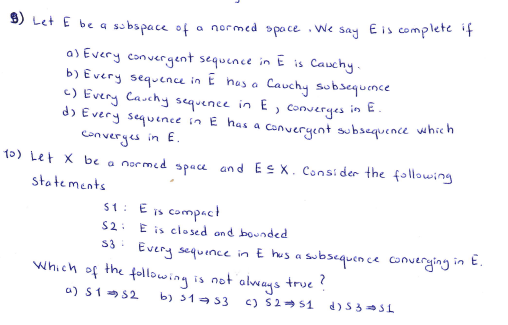 9) Let E be a subspace of a normed space. We say E is complete if
a) Every convergent sequence in E is Cauchy.
b) Every sequence in E has a Cauchy subsequence
c) Every Cauchy sequence in E, converges in E.
d) Every sequence in E has a convergent subsequence which
converges in E.
10) Let X be a normed space and E ⊆ X. Consider the following
statements
S1: E is compact
S2: E is closed and bounded
S3: Every sequence in E has a subsequence converging in E.
Which of the following is not always true?
a) S1 ⇒ S2 b) S1 ⇒ S3 c) S2 ⇒ S1 d) S3 ⇒ S1